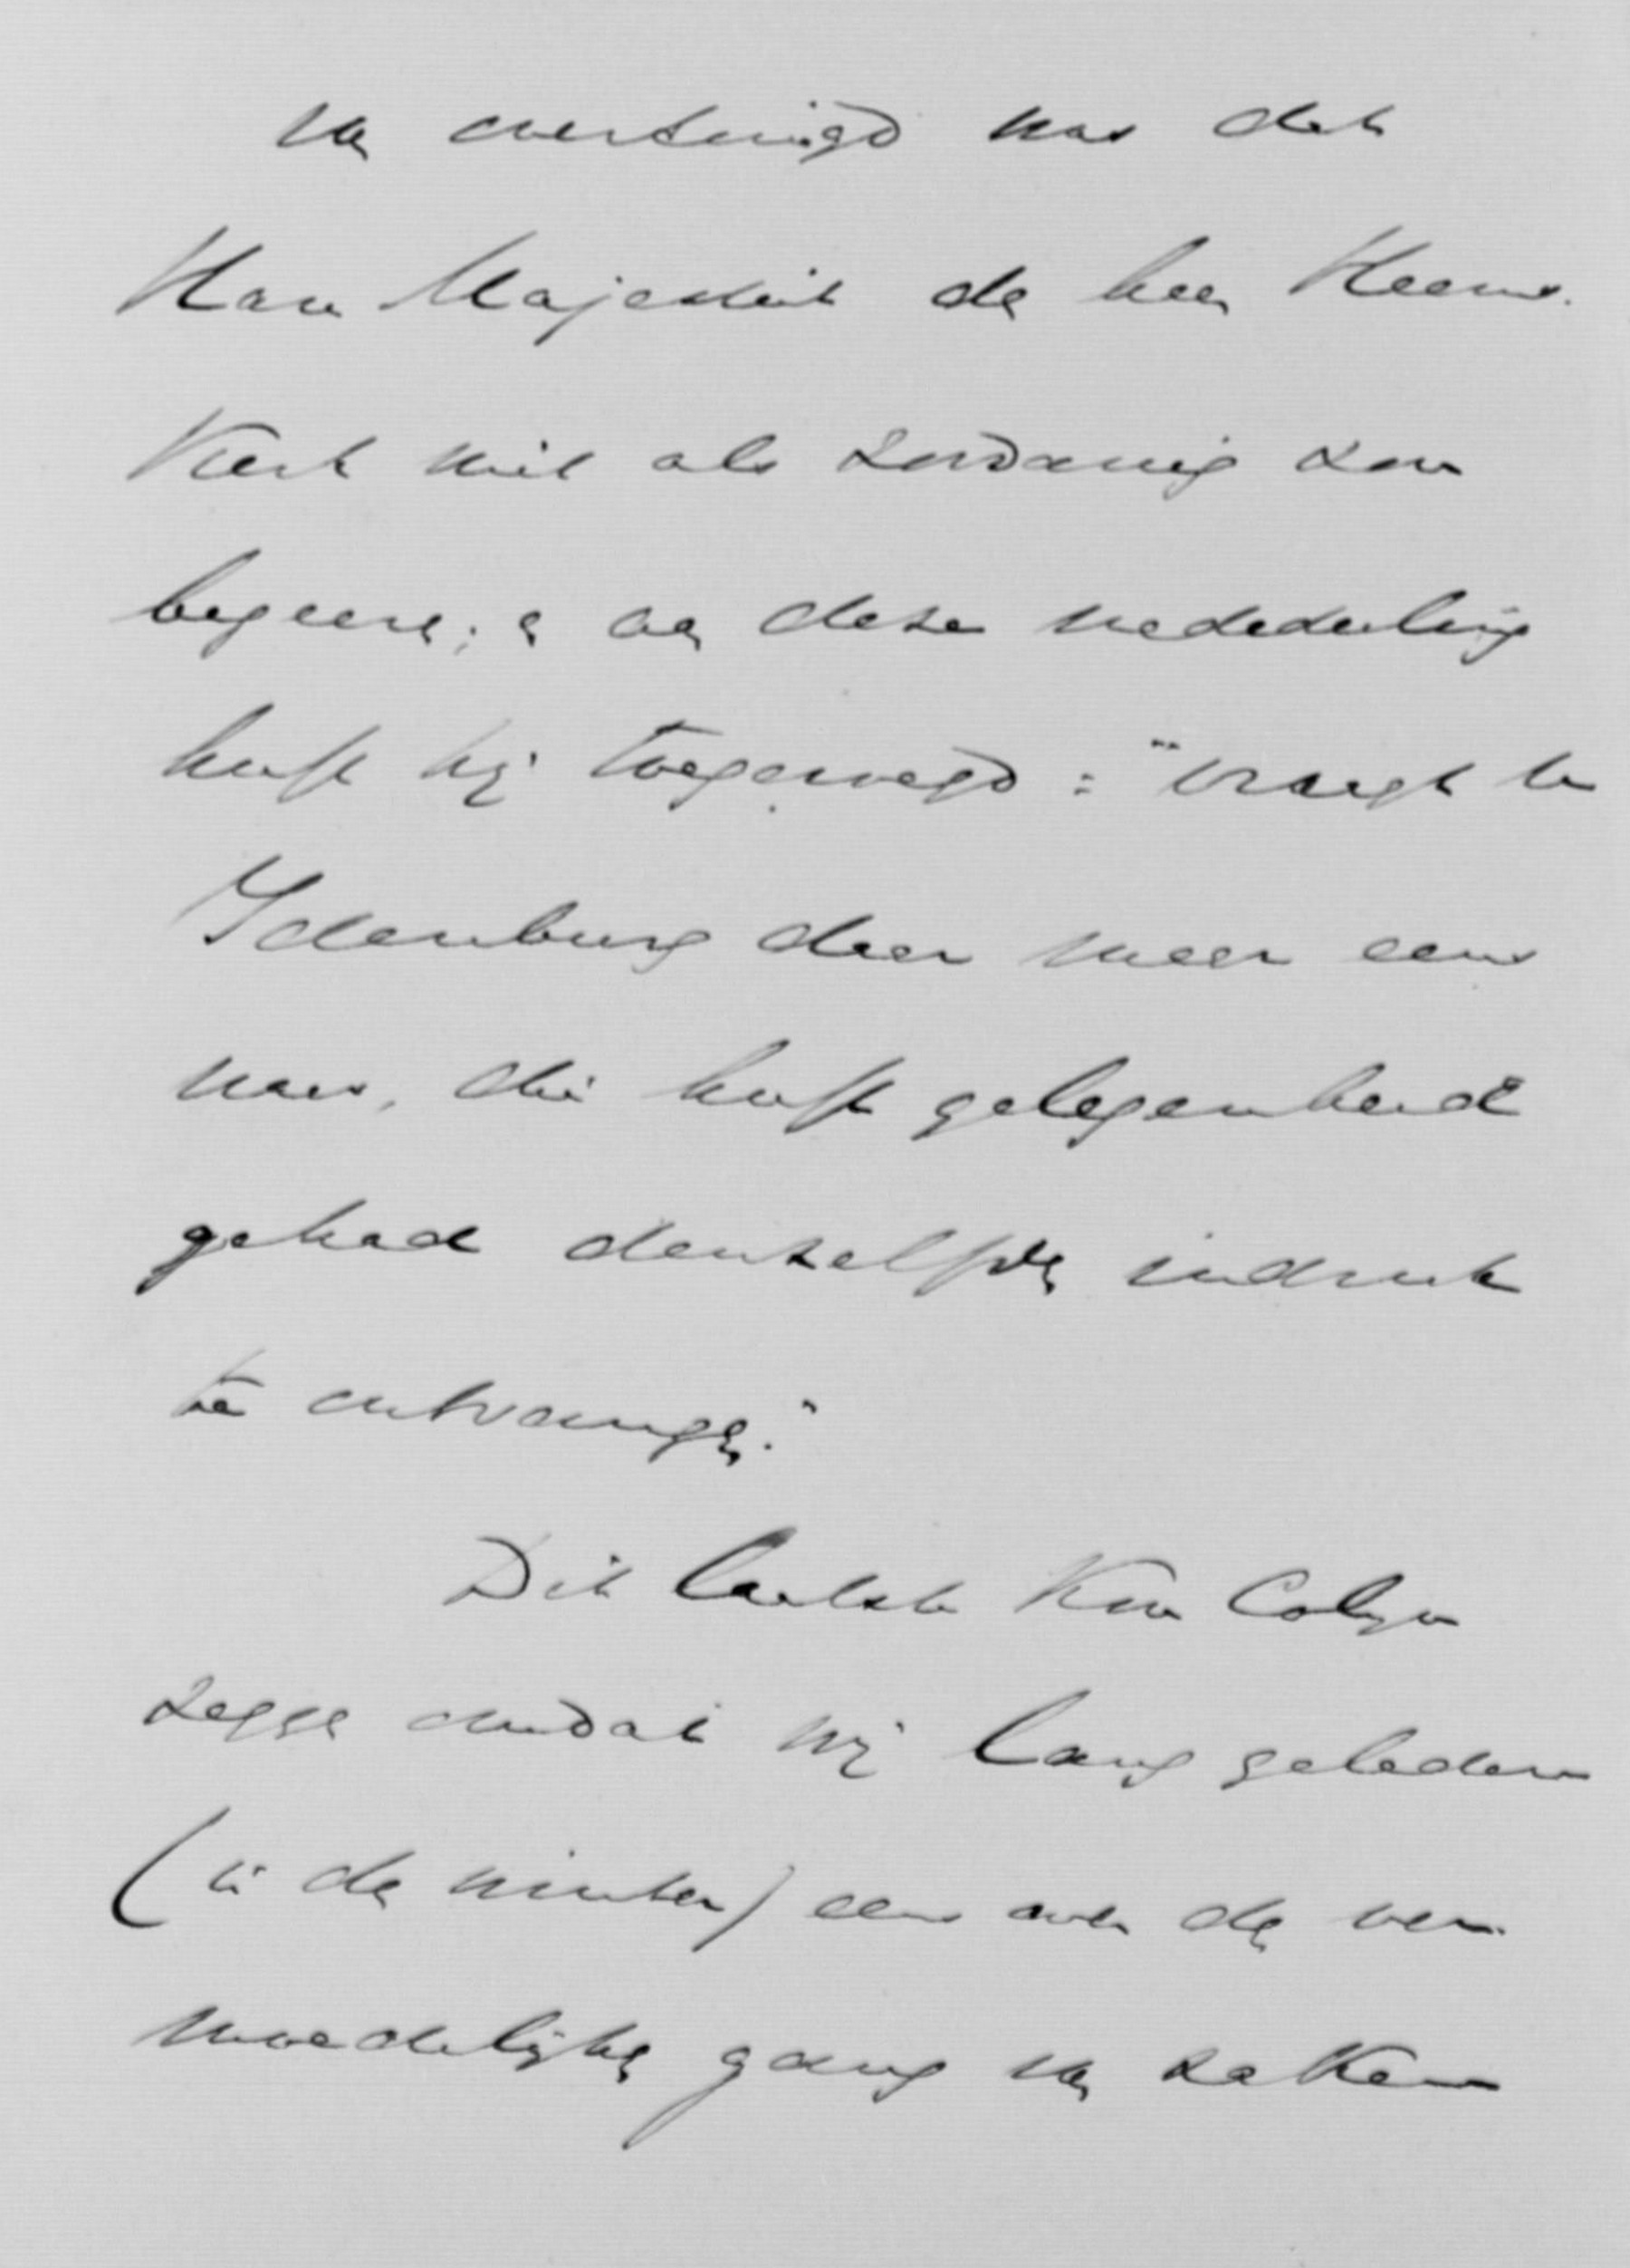 van overtuigd was dat
Hare Majesteit den heer Heems-
kerk niet als zoodanig zou
begeeren; en aan deze mededeeling
heeft hij toegevoegd: "vraagt te
Idenburg daar maar eens
naar, die heeft gelegenheid
gehad denzelfden indruk
te ontvangen."
Dit laatste kon Colijn
zeggen omdat wij lang geleden
(in den winter) eens over den ver-
moedelijken gang van zaken